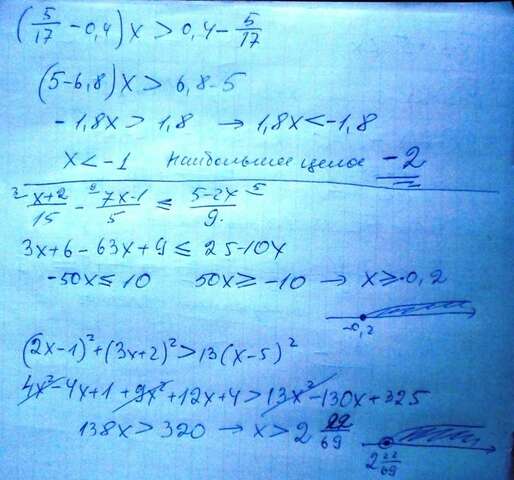 (5/17 - 0,4)x > 0,4 - 5/17
(5-6,8)x > 6,8-5
-1,8x > 1,8 → 1,8x < -1,8
x < -1 наибольшее целое -2
3 x+2/15 - 9 7x-1/5 ≤ 5-2x/9 5
3x+6-63x+9 ≤ 25-10x
-50x ≤ 10 50x ≥ -10 → x ≥ -0,2
-0,2
(2x-1)² + (3x+2)² > 13(x-5)²
4x²-4x+1+9x²+12x+4 > 13x²-130x+325
138x > 320 → x > 2 22/69
2 22/69